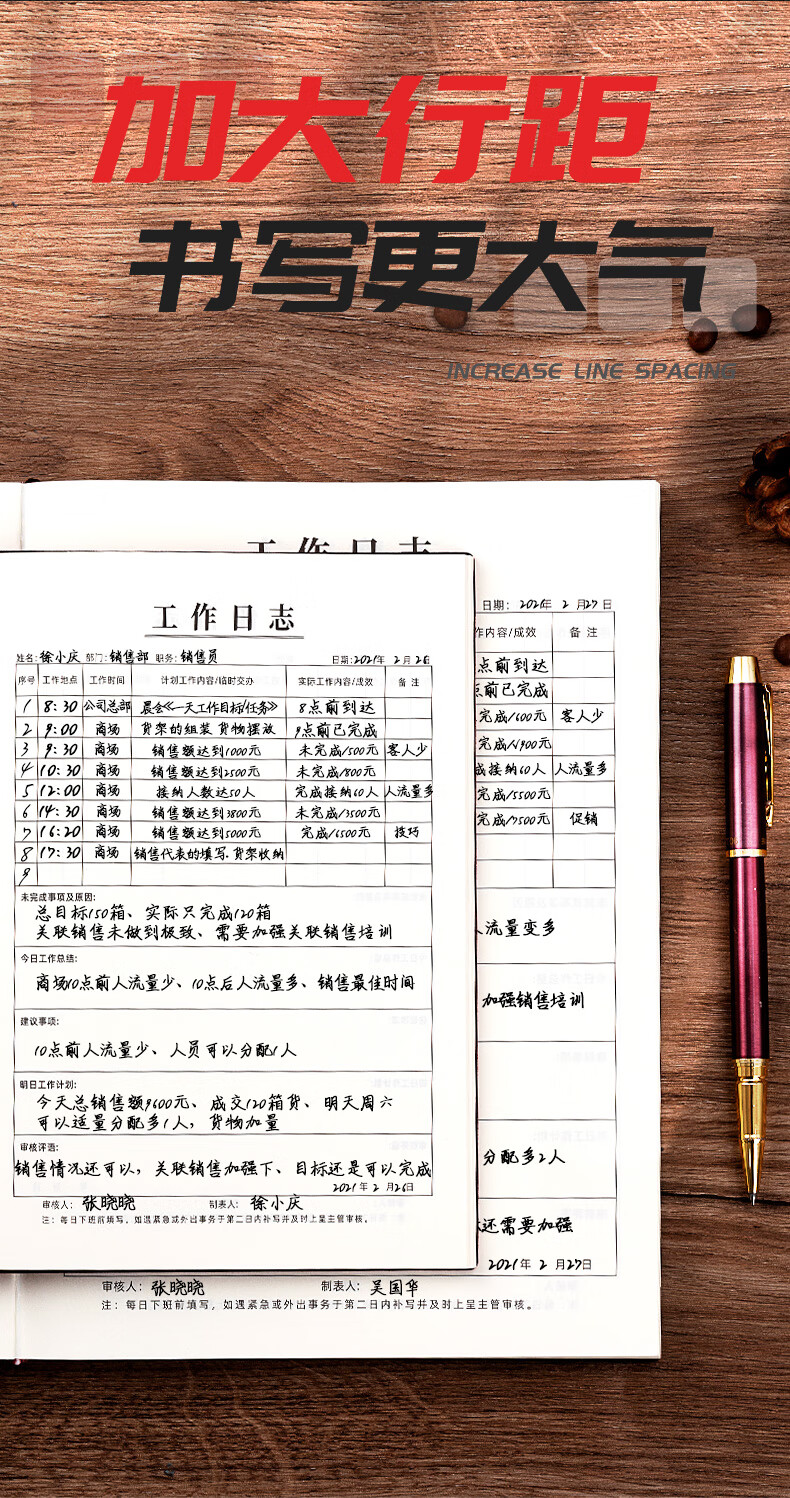 加大行距
书写更大气
INCREASE LINE SPACING
工作日志
工作日志
姓名: 徐小庆 部门: 销售部 职务: 销售员 日期: 2021年 2月26
序号 工作地点 工作时间 计划工作内容/临时交办 实际工作内容/成效 备注
1 8:30 公司总部 晨会《一天工作目标/任务》 8点前到达
2 9:00 商场 货架的组装 货物摆放 9点前已完成
3 9:30 商场 销售额达到1000元 未完成/500元 客人少
4 10:30 商场 销售额达到2500元 未完成/800元
5 12:00 商场 接纳人数达50人 完成接纳60人 人流量多
6 14:30 商场 销售额达到3800元 未完成/3500元
7 16:20 商场 销售额达到5000元 完成/6500元 技巧
8 17:30 商场 销售代表的填写.货架收纳
9
未完成事项及原因:
总目标150箱、实际只完成120箱
关联销售未做到极致、需要加强关联销售培训
今日工作总结:
商场10点前人流量少、10点后人流量多、销售最佳时间
建议事项:
10点前人流量少、人员可以分配1人
明日工作计划:
今天总销售额9600元、成交120箱货、明天周六
可以适量分配多1人，货物加量
审核评语:
销售情况还可以，关联销售加强下、目标还是可以完成
2021年2月26日
审核人: 张晓晓 制表人: 徐小庆
注: 每日下班前填写，如遇紧急或外出事务于第二日内补写并及时上呈主管审核。
日期: 2021年 2月27日
作内容/成效 备注
点前到达
点前已完成
完成/600元 客人少
完成/1900元
成接纳60人 人流量多
完成/5500元
完成/7500元 促销
流量变多
加强销售培训
分配多2人
还需要加强
2021年2月27日
审核人: 张晓晓 制表人: 吴国华
注: 每日下班前填写，如遇紧急或外出事务于第二日内补写并及时上呈主管审核。